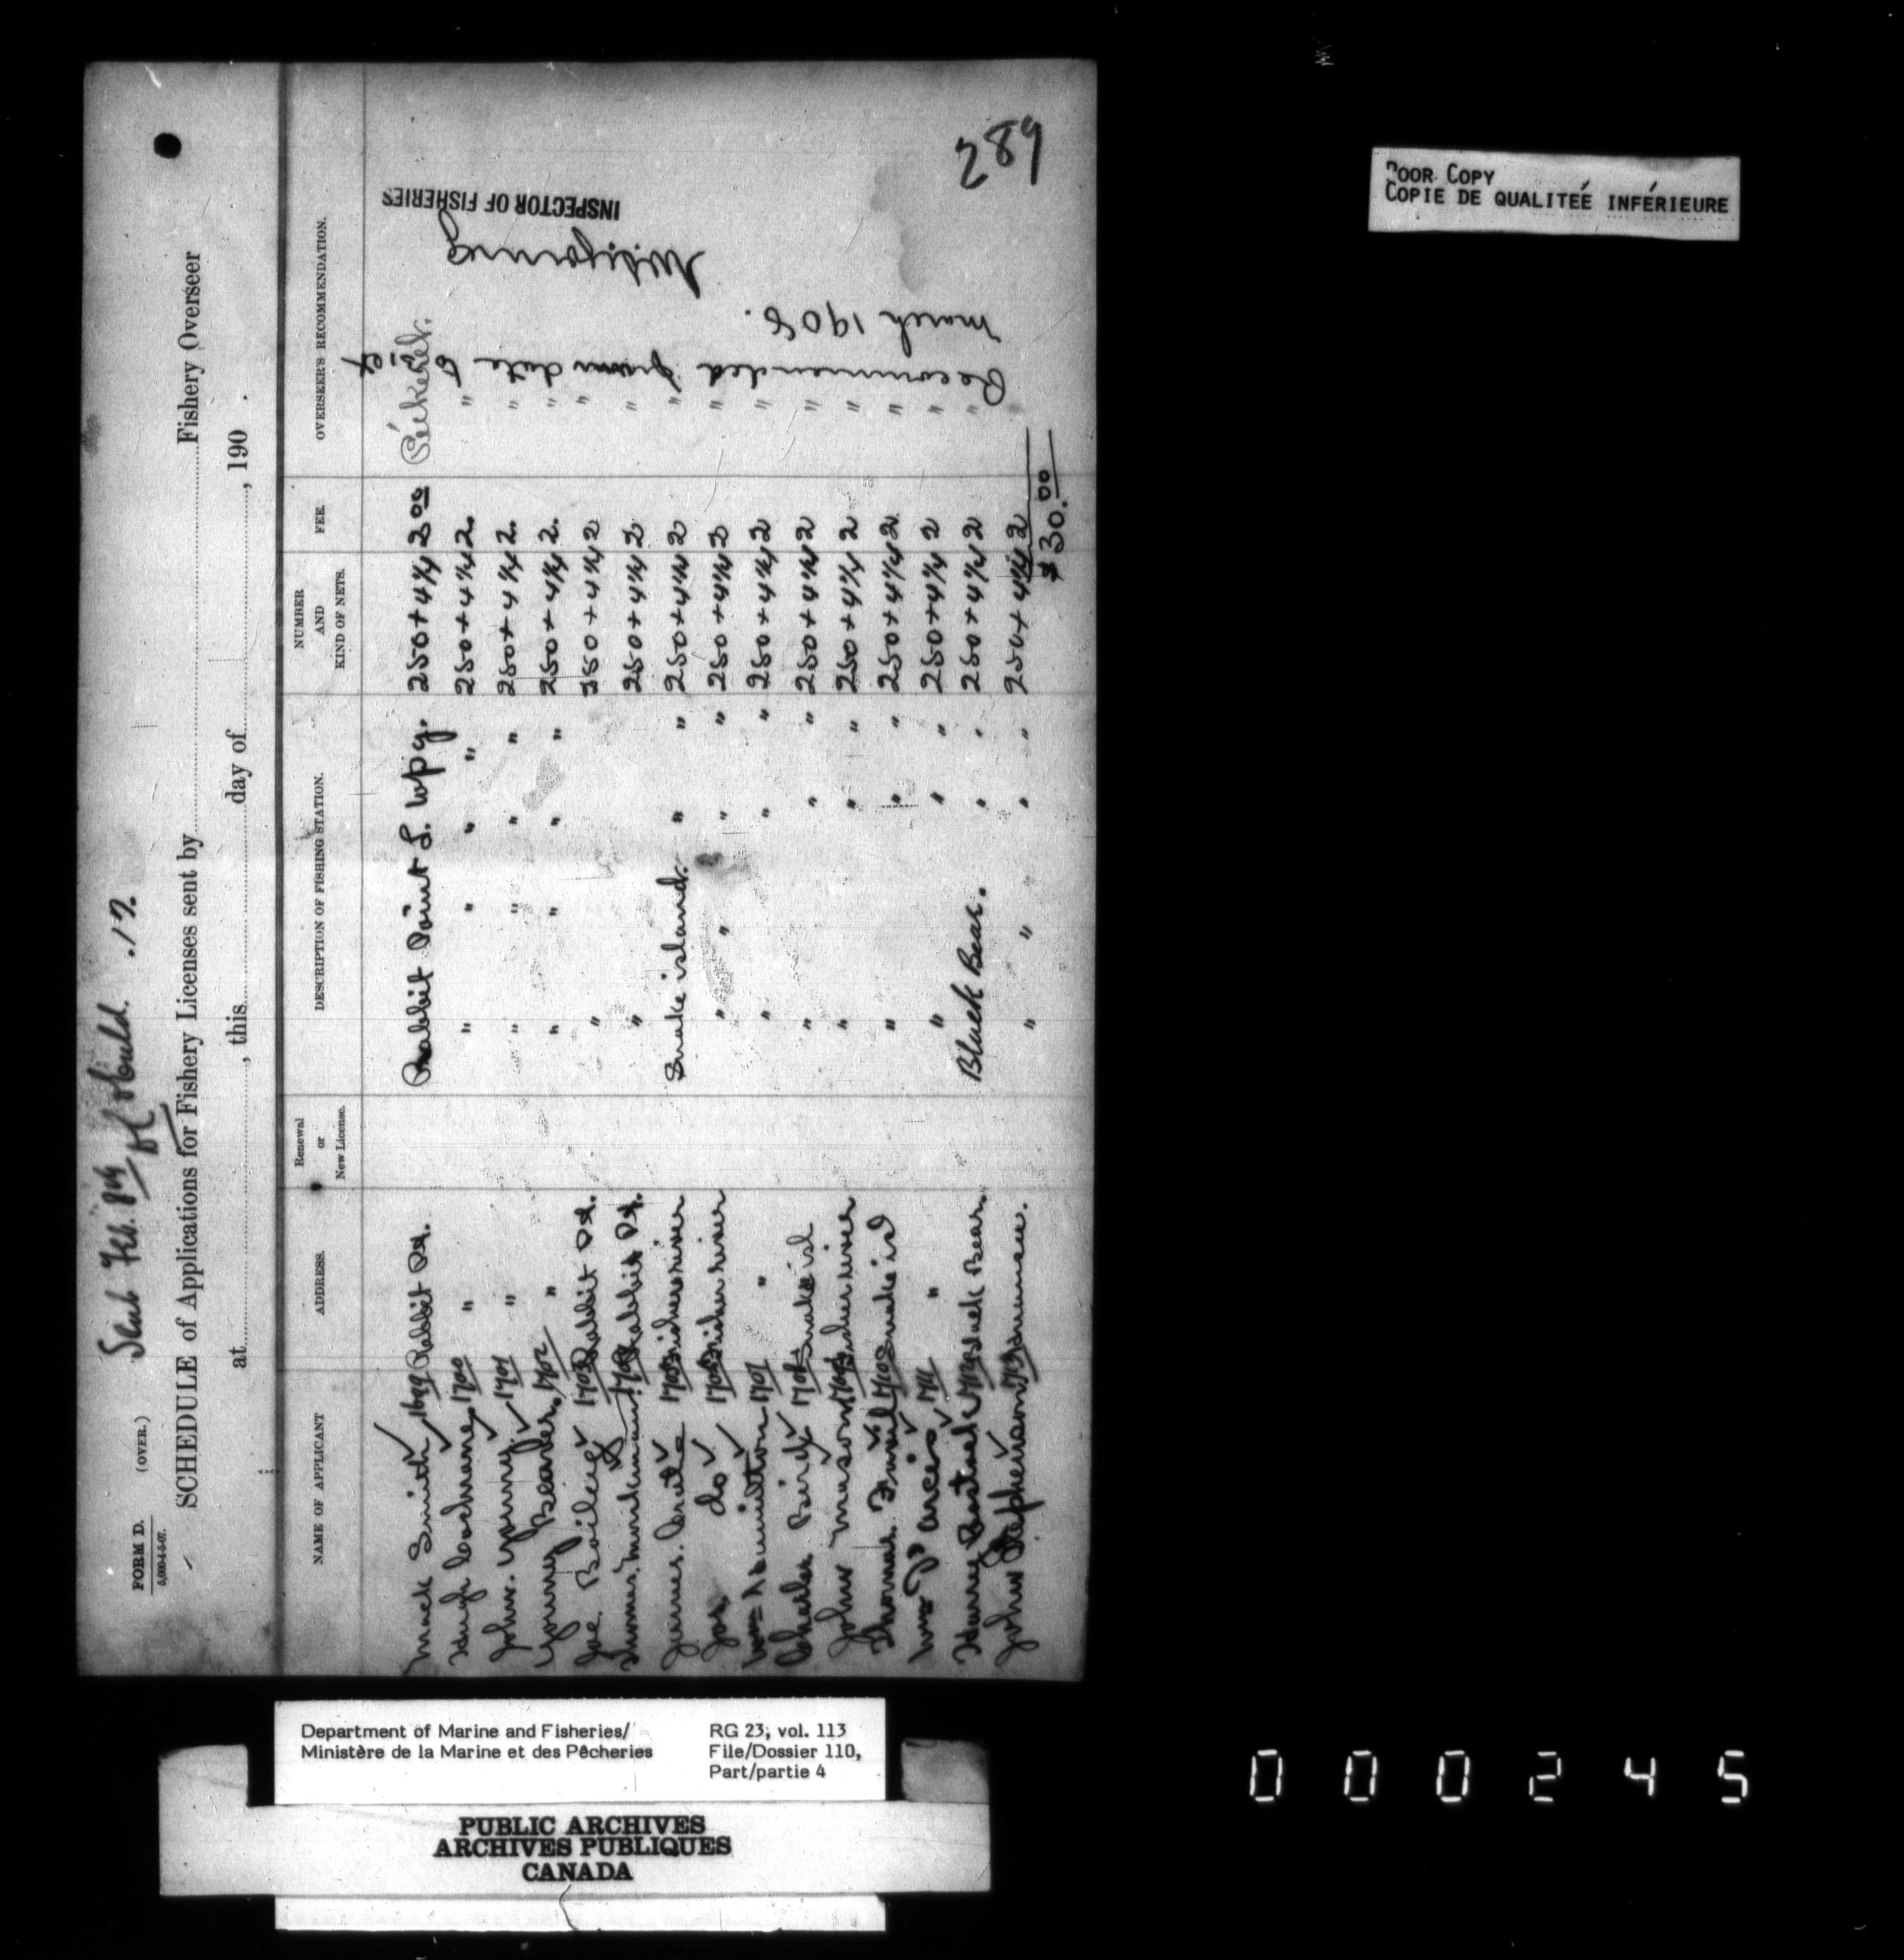 289
FORM D. (OVER.)
5,000-4-5-07.
Feb. 8th
SCHEDULE of Applications for Fishery Licenses sent by Fishery Overseer
at , this day of , 190 .
NAME OF APPLICANT ADDRESS. Renewal or New License. DESCRIPTION OF FISHING STATION. NUMBER AND KIND OF NETS. FEE. OVERSEER'S RECOMMENDATION.
Mack Smith 1699 Rabbit Pt. Rabbit Point L. Wpg. 250 + 4 1/4 2 00
Hugh Cochrane 1700 " " " " " 250 + 4 1/4 2. "
John Young 1701 " " " " " 250 + 4 1/4 2. "
Young Beardy 1702 " " " " " 250 + 4 1/4 2. "
Joe Bailey 1703 Rabbit Pt. " 250 + 4 1/4 2 "
Thomas 1704 Rabbit Pt. " 250 + 4 1/4 2 "
James 1705 Fisher river Snake island. " " 250 + 4 1/4 2 "
Jos do 1706 Fisher river " " " " 250 + 4 1/4 2 "
Wm Hamilton 1707 " " " " 250 + 4 1/4 2 "
Charles 1708 Snake isl " " " 250 + 4 1/4 2 "
John Mason 1709 Fisher river " " " 250 + 4 1/4 2 "
Thomas Snake isl " " " 250 + 4 1/4 2 "
Wm 1711 " " " " 250 + 4 1/4 2 "
Black Bear Black Bear. " " 250 + 4 1/4 2 "
John Stephenson " " " " 250 + 4 1/4 2
$30.00
Recommended from date to
March 1908.
INSPECTOR OF FISHERIES
POOR COPY
COPIE DE QUALITEÉ INFÉRIEURE
Department of Marine and Fisheries/ RG 23, vol. 113
Ministère de la Marine et des Pêcheries File/Dossier 110,
Part/partie 4
PUBLIC ARCHIVES
ARCHIVES PUBLIQUES
CANADA
000245